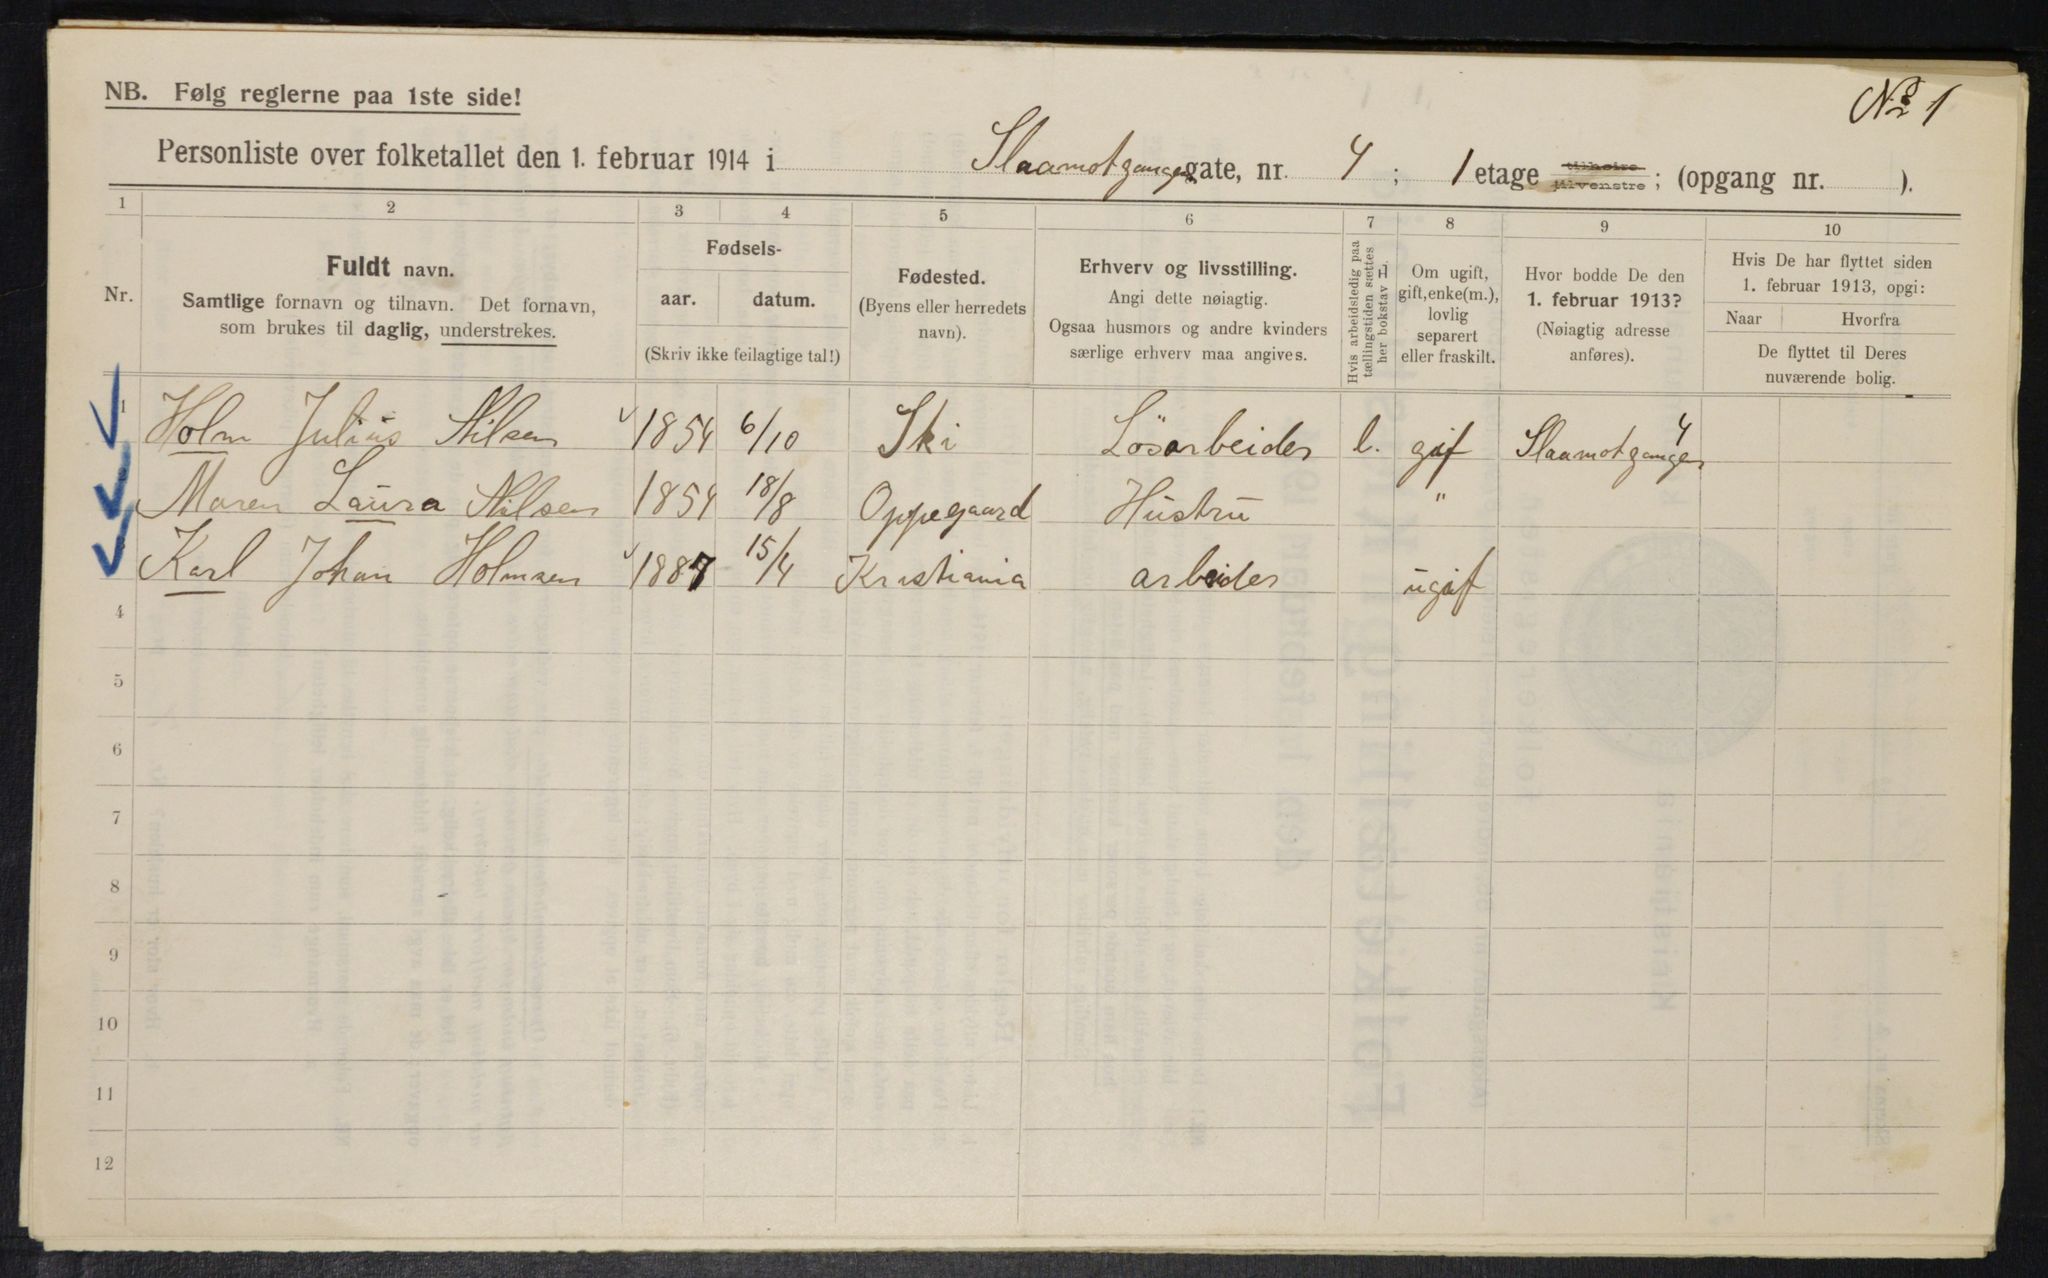 No 1
NB. Følg reglerne paa 1ste side!
Personliste over folketallet den 1. februar 1914 i Slaamotgangen gate, nr. 4 ; 1 etage tilhøire tilvenstre ; (opgang nr. ).
1 2 3 4 5 6 7 8 9 10
Nr.
Fuldt navn.
Samtlige fornavn og tilnavn. Det fornavn,
som brukes til daglig, understrekes.
Fødsels-
aar. datum.
(Skriv ikke feilagtige tal!)
Fødested.
(Byens eller herredets
navn).
Erhverv og livsstilling.
Angi dette nøiagtig.
Ogsaa husmors og andre kvinders
særlige erhverv maa angives.
Hvis arbeidsledig paa
tællingstiden sættes
her bokstav L.
Om ugift,
gift, enke(m.),
lovlig
separert
eller fraskilt.
Hvor bodde De den
1. februar 1913?
(Nøiagtig adresse
anføres).
Hvis De har flyttet siden
1. februar 1913, opgi:
Naar Hvorfra
De flyttet til Deres
nuværende bolig.
1 Holm Julius Nilsen 1854 6/10 Ski Lösarbeider l. gif Slaamotgangen 4
Maren Laura Nilsen 1854 18/8 Oppegaard Hustru "
Karl Johan Holmsen 1887 15/4 Kristiania arbeider ugif
4
5
6
7
8
9
10
11
12